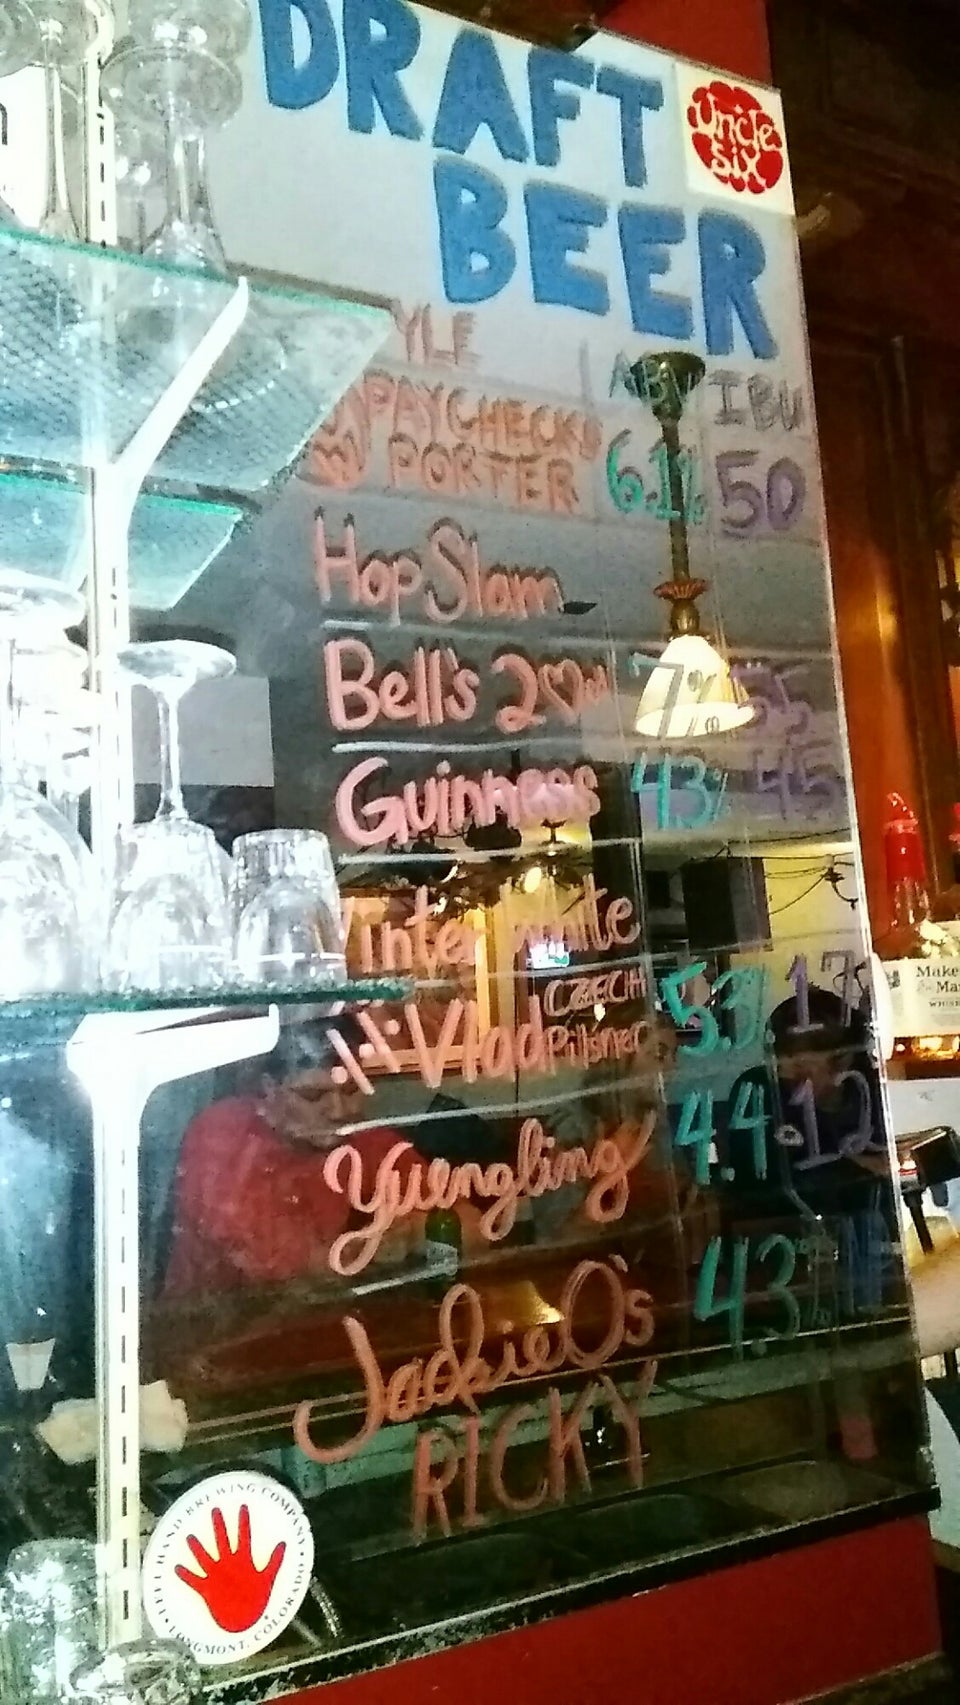 DRAFT
BEER
Uncle
Six
YLE ABV IBU
PAYCHECK
PORTER 6.1% 50
HopSlam
Bell's 2♡ed 7% 55
Guinness 4.3% 45
Winter White
Vlad CZECH
Pilsner 5.3% 17
Yuengling 4.4 12
JackieO's 4.3%
RICKY
LEFT HAND BREWING COMPANY
LONGMONT, COLORADO
Make
Ma
WHIS